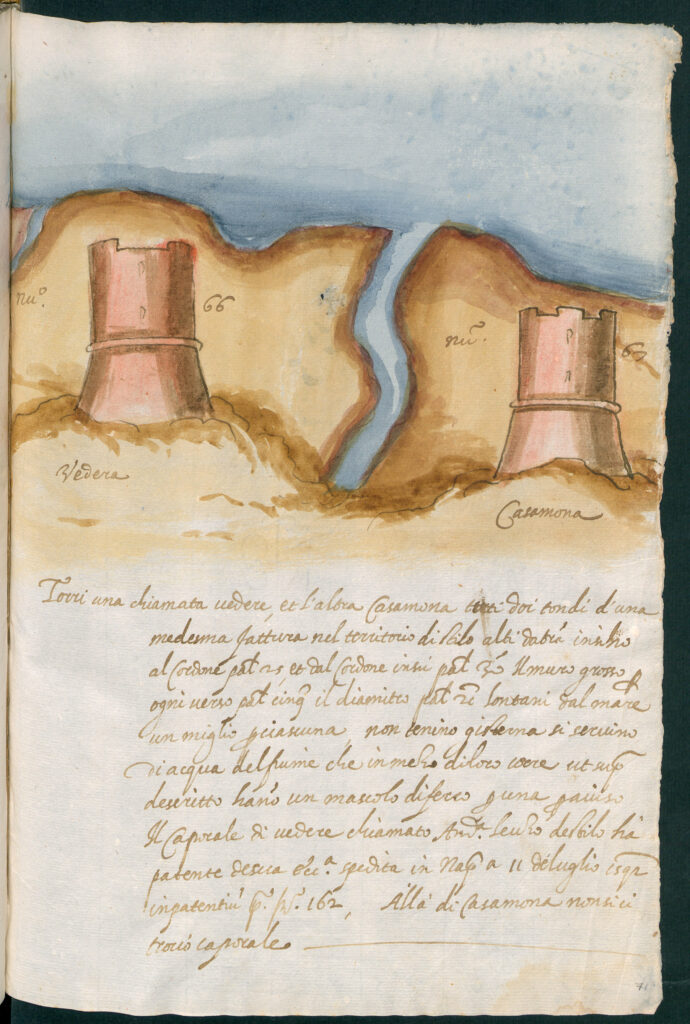 nu.º
66
nu.º
67
Vedera
Casamona
Torri una chiamata vedere, et l'altra Casamona tutti doi tondi d'una
medesma fattura nel territorio di stilo alti da trã insino
al Cordone pal. 25, et dal Cordone insu pal. Il muro grosso
ogni verso pal. cinq. il diamitro pal. lontani dal mare
un miglio ꝑ ciascuna non teneno gisterna si serveno
di acqua del fiume che in mezo di loro corre ut supª
descritto hanõ un mascolo di ferro ꝑ una ꝑ aviso
Il Caporale di vedere chiamato And.ª de stilo hà
patente de sua ecc.ª spedita in Nap. a 11 de luglio
in patentiũ pº. fº. 162, Alla di Casamona non si ci
trovò caporale
71